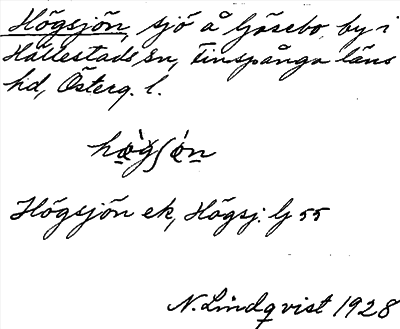 Högsjön, sjö å Gåsebo, by i
Hällestads sn, Finspånga läns
hd, Österg. l.
Högsjön ek, Högsj. Gj 55
N. Lindqvist 1928